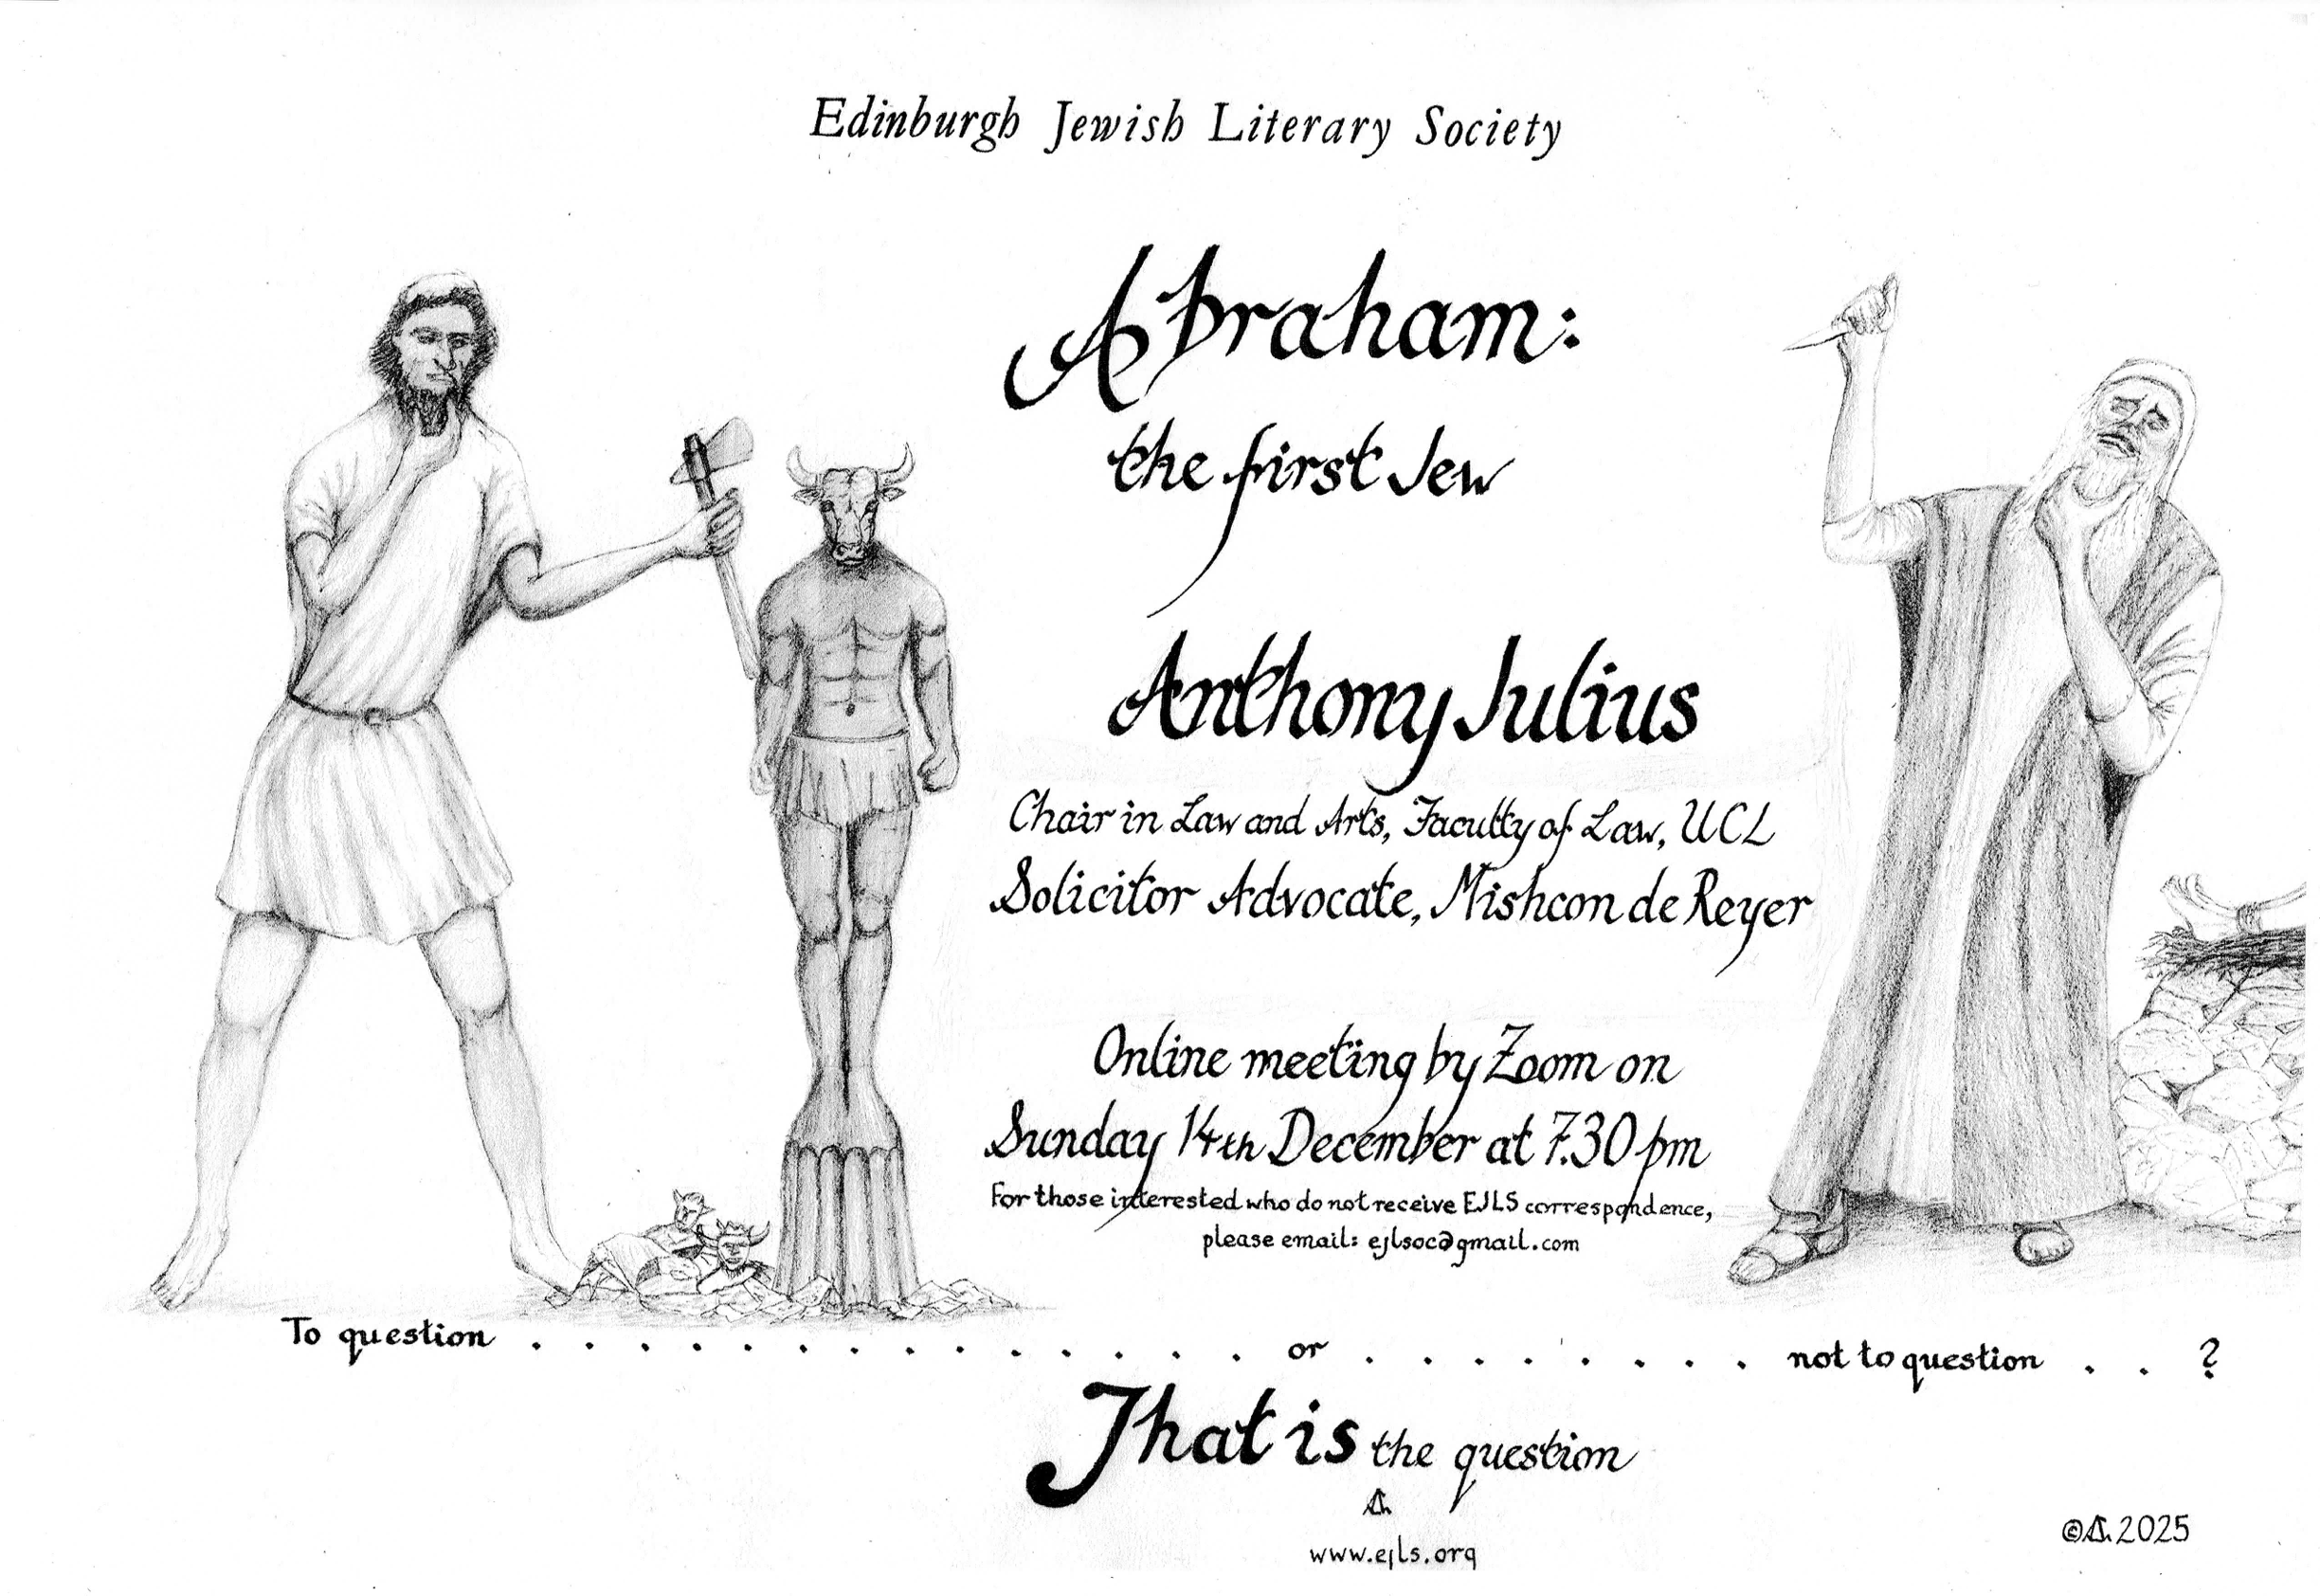 Edinburgh Jewish Literary Society
Abraham:
the first Jew
Anthony Julius
Chair in Law and Arts, Faculty of Law, UCL
Solicitor Advocate, Mishcon de Reyer
Online meeting by Zoom on
Sunday 14th December at 7.30 pm
For those interested who do not receive EJLS correspondence,
please email: ejlsoc@gmail.com
To question . . . . . . . . . . . . . . or . . . . . . . . not to question . . ?
That is the question
www.ejls.org
© 2025